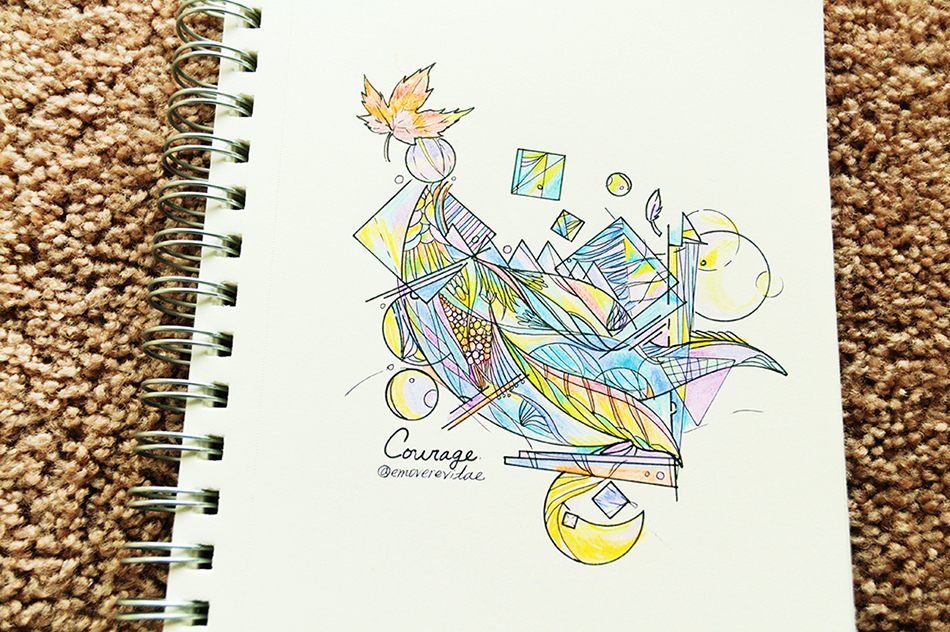 Courage.
@emoverevitae